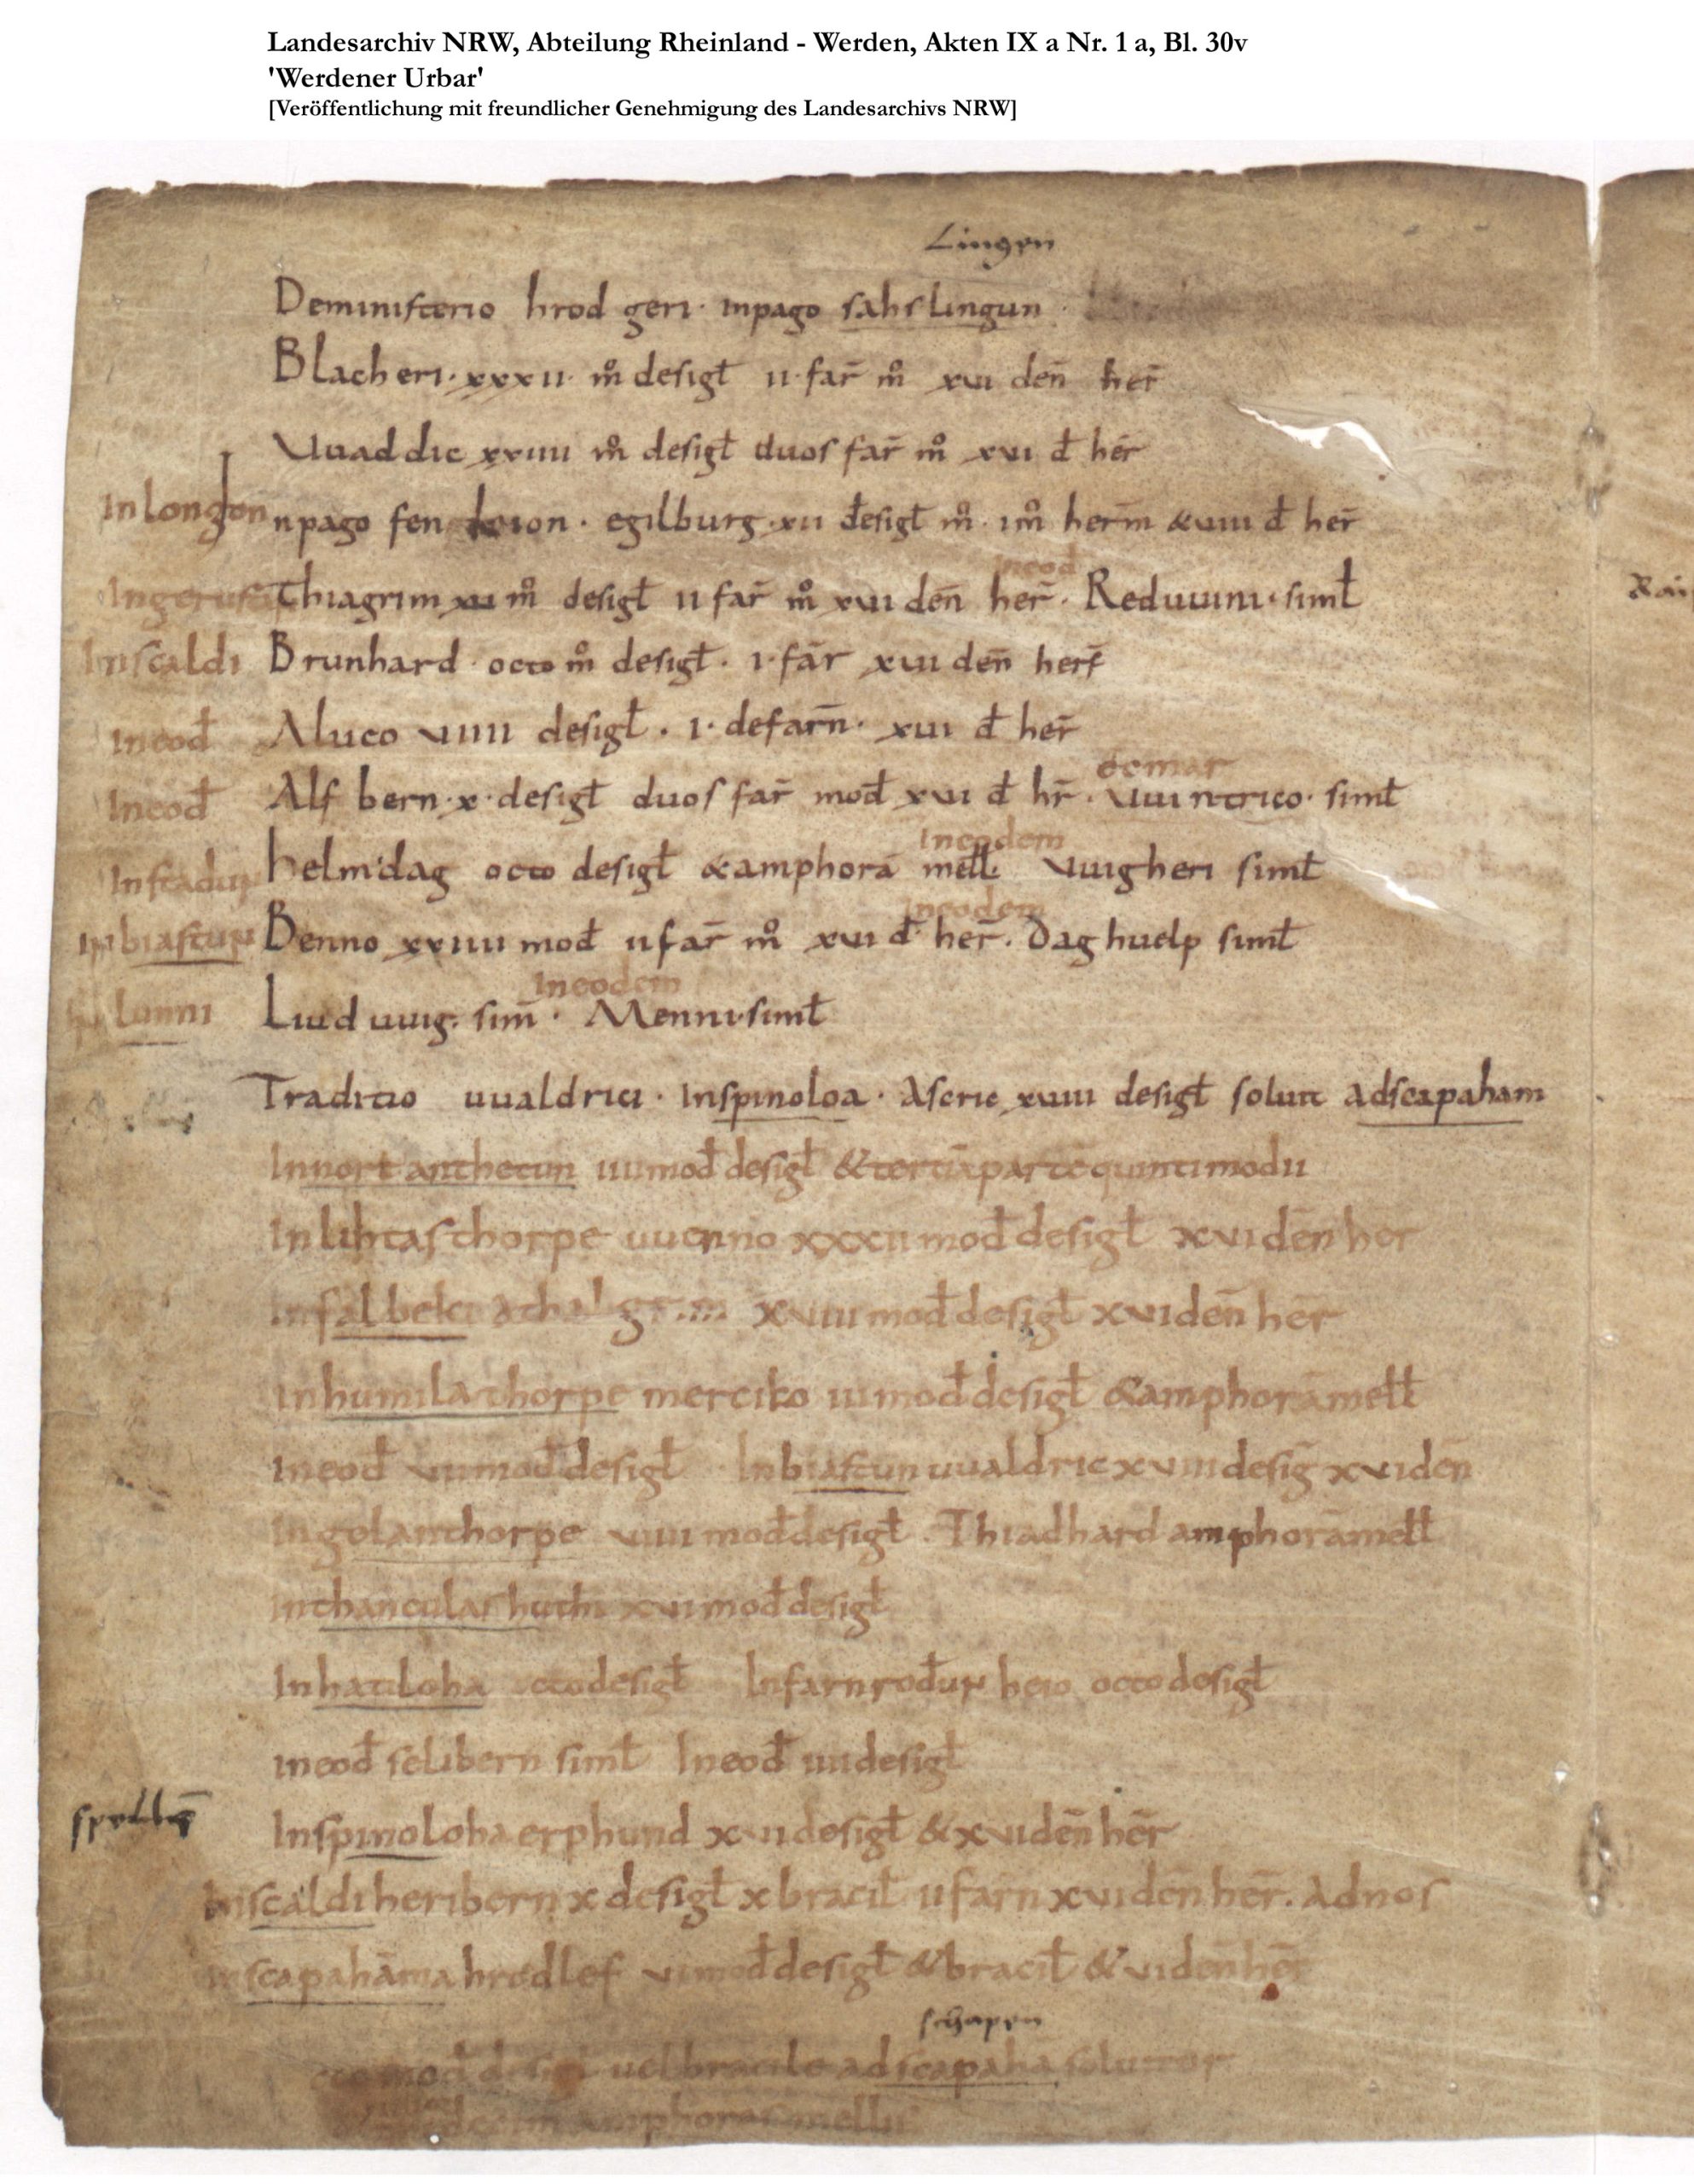 Landesarchiv NRW, Abteilung Rheinland - Werden, Akten IX a Nr. 1 a, Bl. 30v
'Werdener Urbar'
[Veröffentlichung mit freundlicher Genehmigung des Landesarchivs NRW]
Lingen
Deministerio hrodgeri · inpago sahslingun ·
Blacheri · xxxii · m̊ desigł ii · far̄ m̊ xvi den̄ her̄
Uuaddic xxiiii m̊ desigł duos far̄ m̊ xvi đ her̄
Inlongon
Inpago fen kion · egilburg · xii desigł m̊ · im̊ herm̄ &viii đ her̄
Ineod
Thiagrim xii m̊ desigł ii far̄ m̊ xvi den̄ her̄ · Reduuini · simł
Inscaldi Brunhard · octo m̊ desigł · i · far̄ xvi den̄ her̄
Ineođ Aluco viiii desigł · i · defarn̄ · xvi đ her̄
demar
Ineođ Alfbern · x · desigł duos far̄ mođ xvi đ hr̄ · Uuintrico · simł
Ineodem
Instadun helmdag octo desigł &amphorā mełł Uuigheri simł
Ineodem
Inbiastun Benno xxiiii mođ ii far̄ m̊ xvi đ her̄ · Daghuelp simł
Ineodem
lunni Liuduuig · sim̄ · Menni · simł
Traditio uualdrici · Inspinoloa · Ascric xviii desigł soluit adscapaham
Innortanthetun iiii mođ desigł &tertiāpartēquintimodii
Inlihtasthorpe uuenno xxxii mođ desigł xvi den̄ her̄
Infalbeki athalgrim xviii mođ desigł xvi den̄ her̄
Inhumilathorpe merciko iii mođ desigł &amphorāmełł
Ineođ vii mođ desigł Inbiastun uualdric xviii desiḡ xvi den̄
Ingolanthorpe viiii mođ desigł Thiadhard amphorāmełł
Inthancularshuthi xvi mođ desigł
Inhatiloha octo desigł Infarnrođun heio octo desigł
ineođ selibern simł Ineođ iiii desigł
spellē Inspinoloha erphund xvii desigł &xvi den̄ her̄
Inscaldi heribern x desigł x bracił ii farn̄ xvi den̄ her̄. Adnos
inscapahām̄a hrodlef vi mođ desigł &bracił &vi den̄ her̄
schapen
mođ desigł uelbracile adscapaha soluitur
amphoras mellis